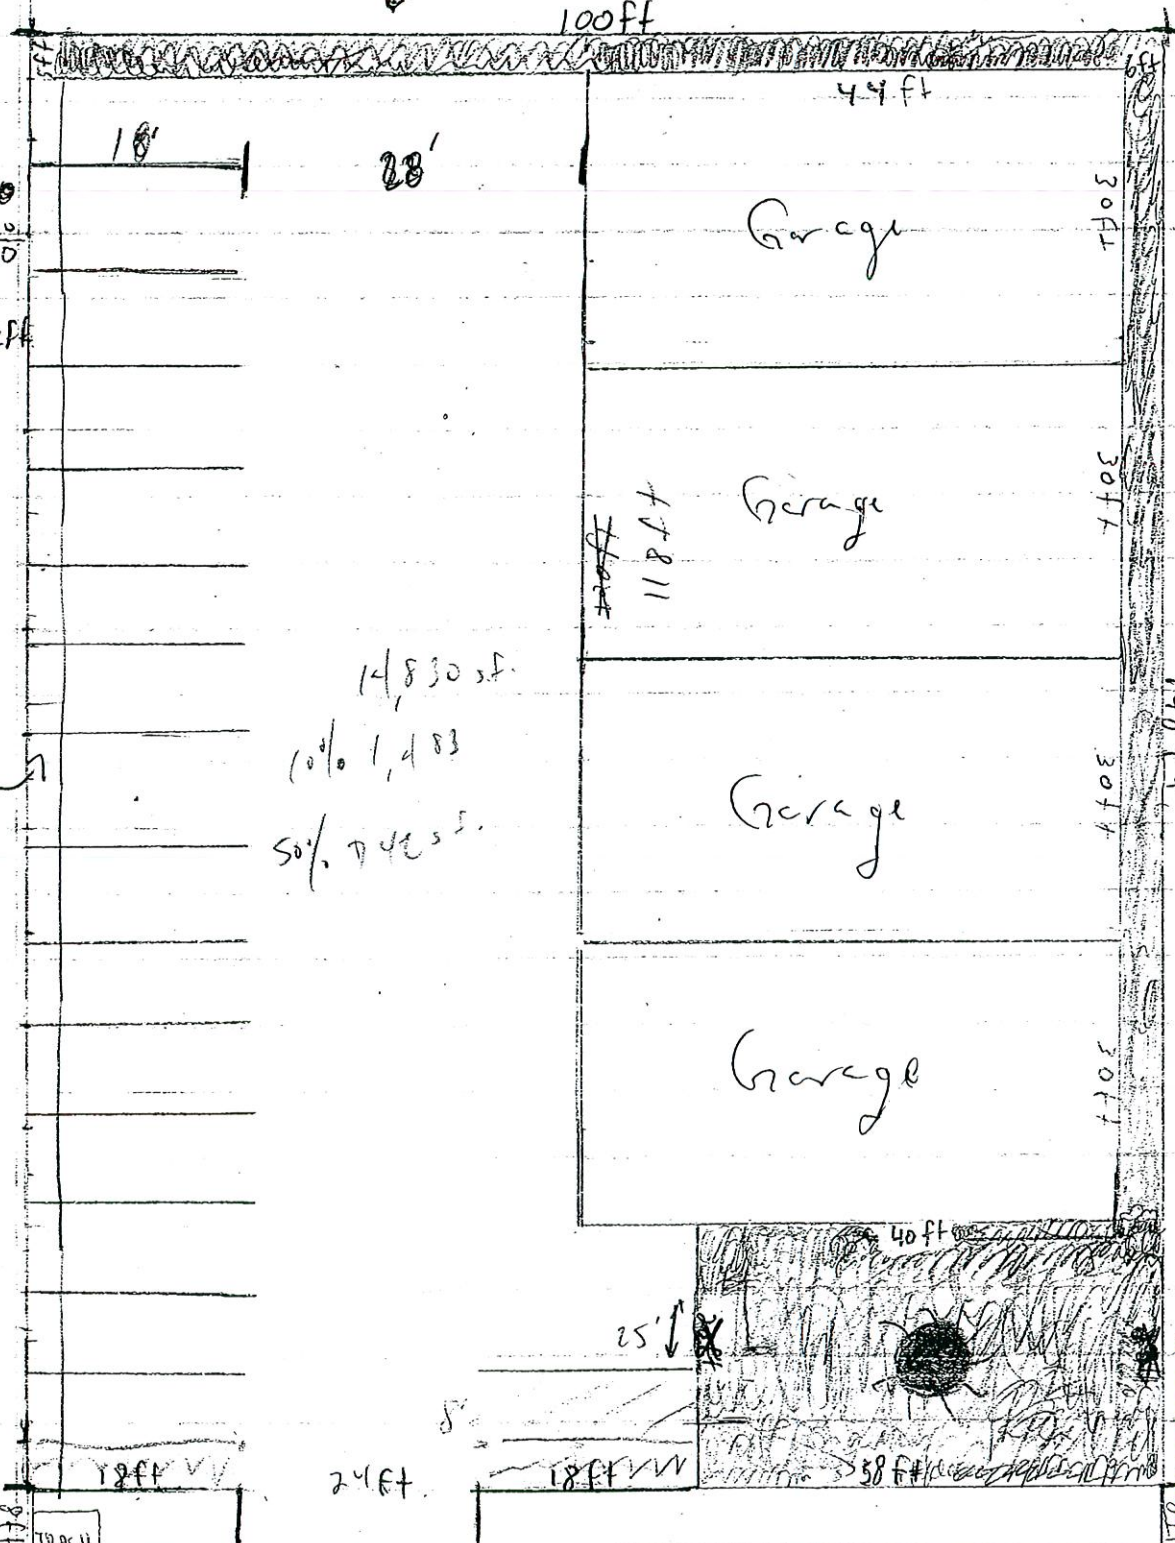 100ft
5ft
44 ft
18'
28'
Garage
30ft
Garage
30ft
118 ft
14,830 sf.
10% 1,483
50% 742 sf.
Garage
30ft
Garage
30ft
40ft
25'
8'
18ft
24ft
18ft
38ft